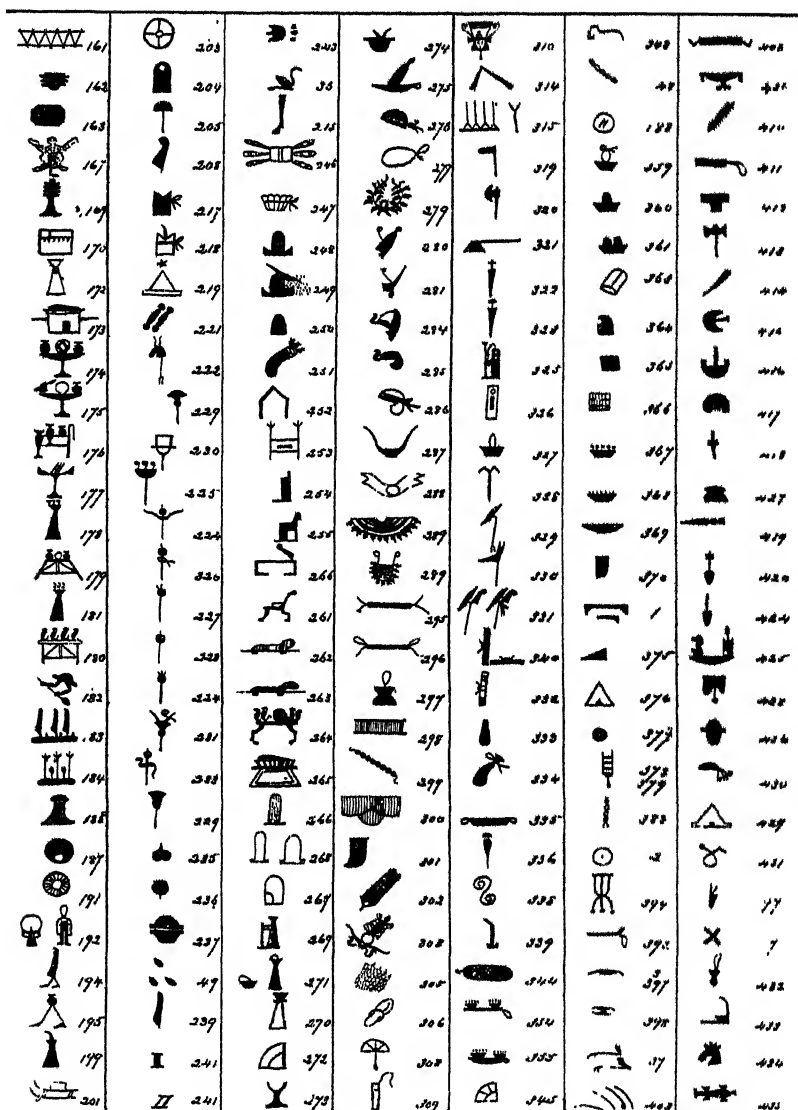 161
162
163
167
169
170
172
173
174
175
176
177
178
179
181
180
182
183
184
187
191
192
194
195
199
201
203
204
205
208
217
218
219
221
222
229
230
225
224
227
228
234
231
233
229
235
236
237
49
239
241
241
243
35
215
246
247
248
249
250
251
252
253
254
255
261
262
263
264
265
266
268
267
269
271
270
272
273
274
275
276
277
279
280
281
284
285
286
287
288
289
289
295
296
297
298
299
300
301
302
303
305
306
308
309
310
314
315
319
320
321
322
323
325
326
327
328
329
330
331
340
332
333
334
335
336
338
339
344
354
355
345
348
48
188
359
360
361
363
364
365
366
367
368
369
370
1
375
376
377
378
379
383
2
394
392
397
398
37
403
410
411
412
413
414
415
416
417
418
427
419
420
424
425
428
426
430
429
431
77
7
432
433
434
435